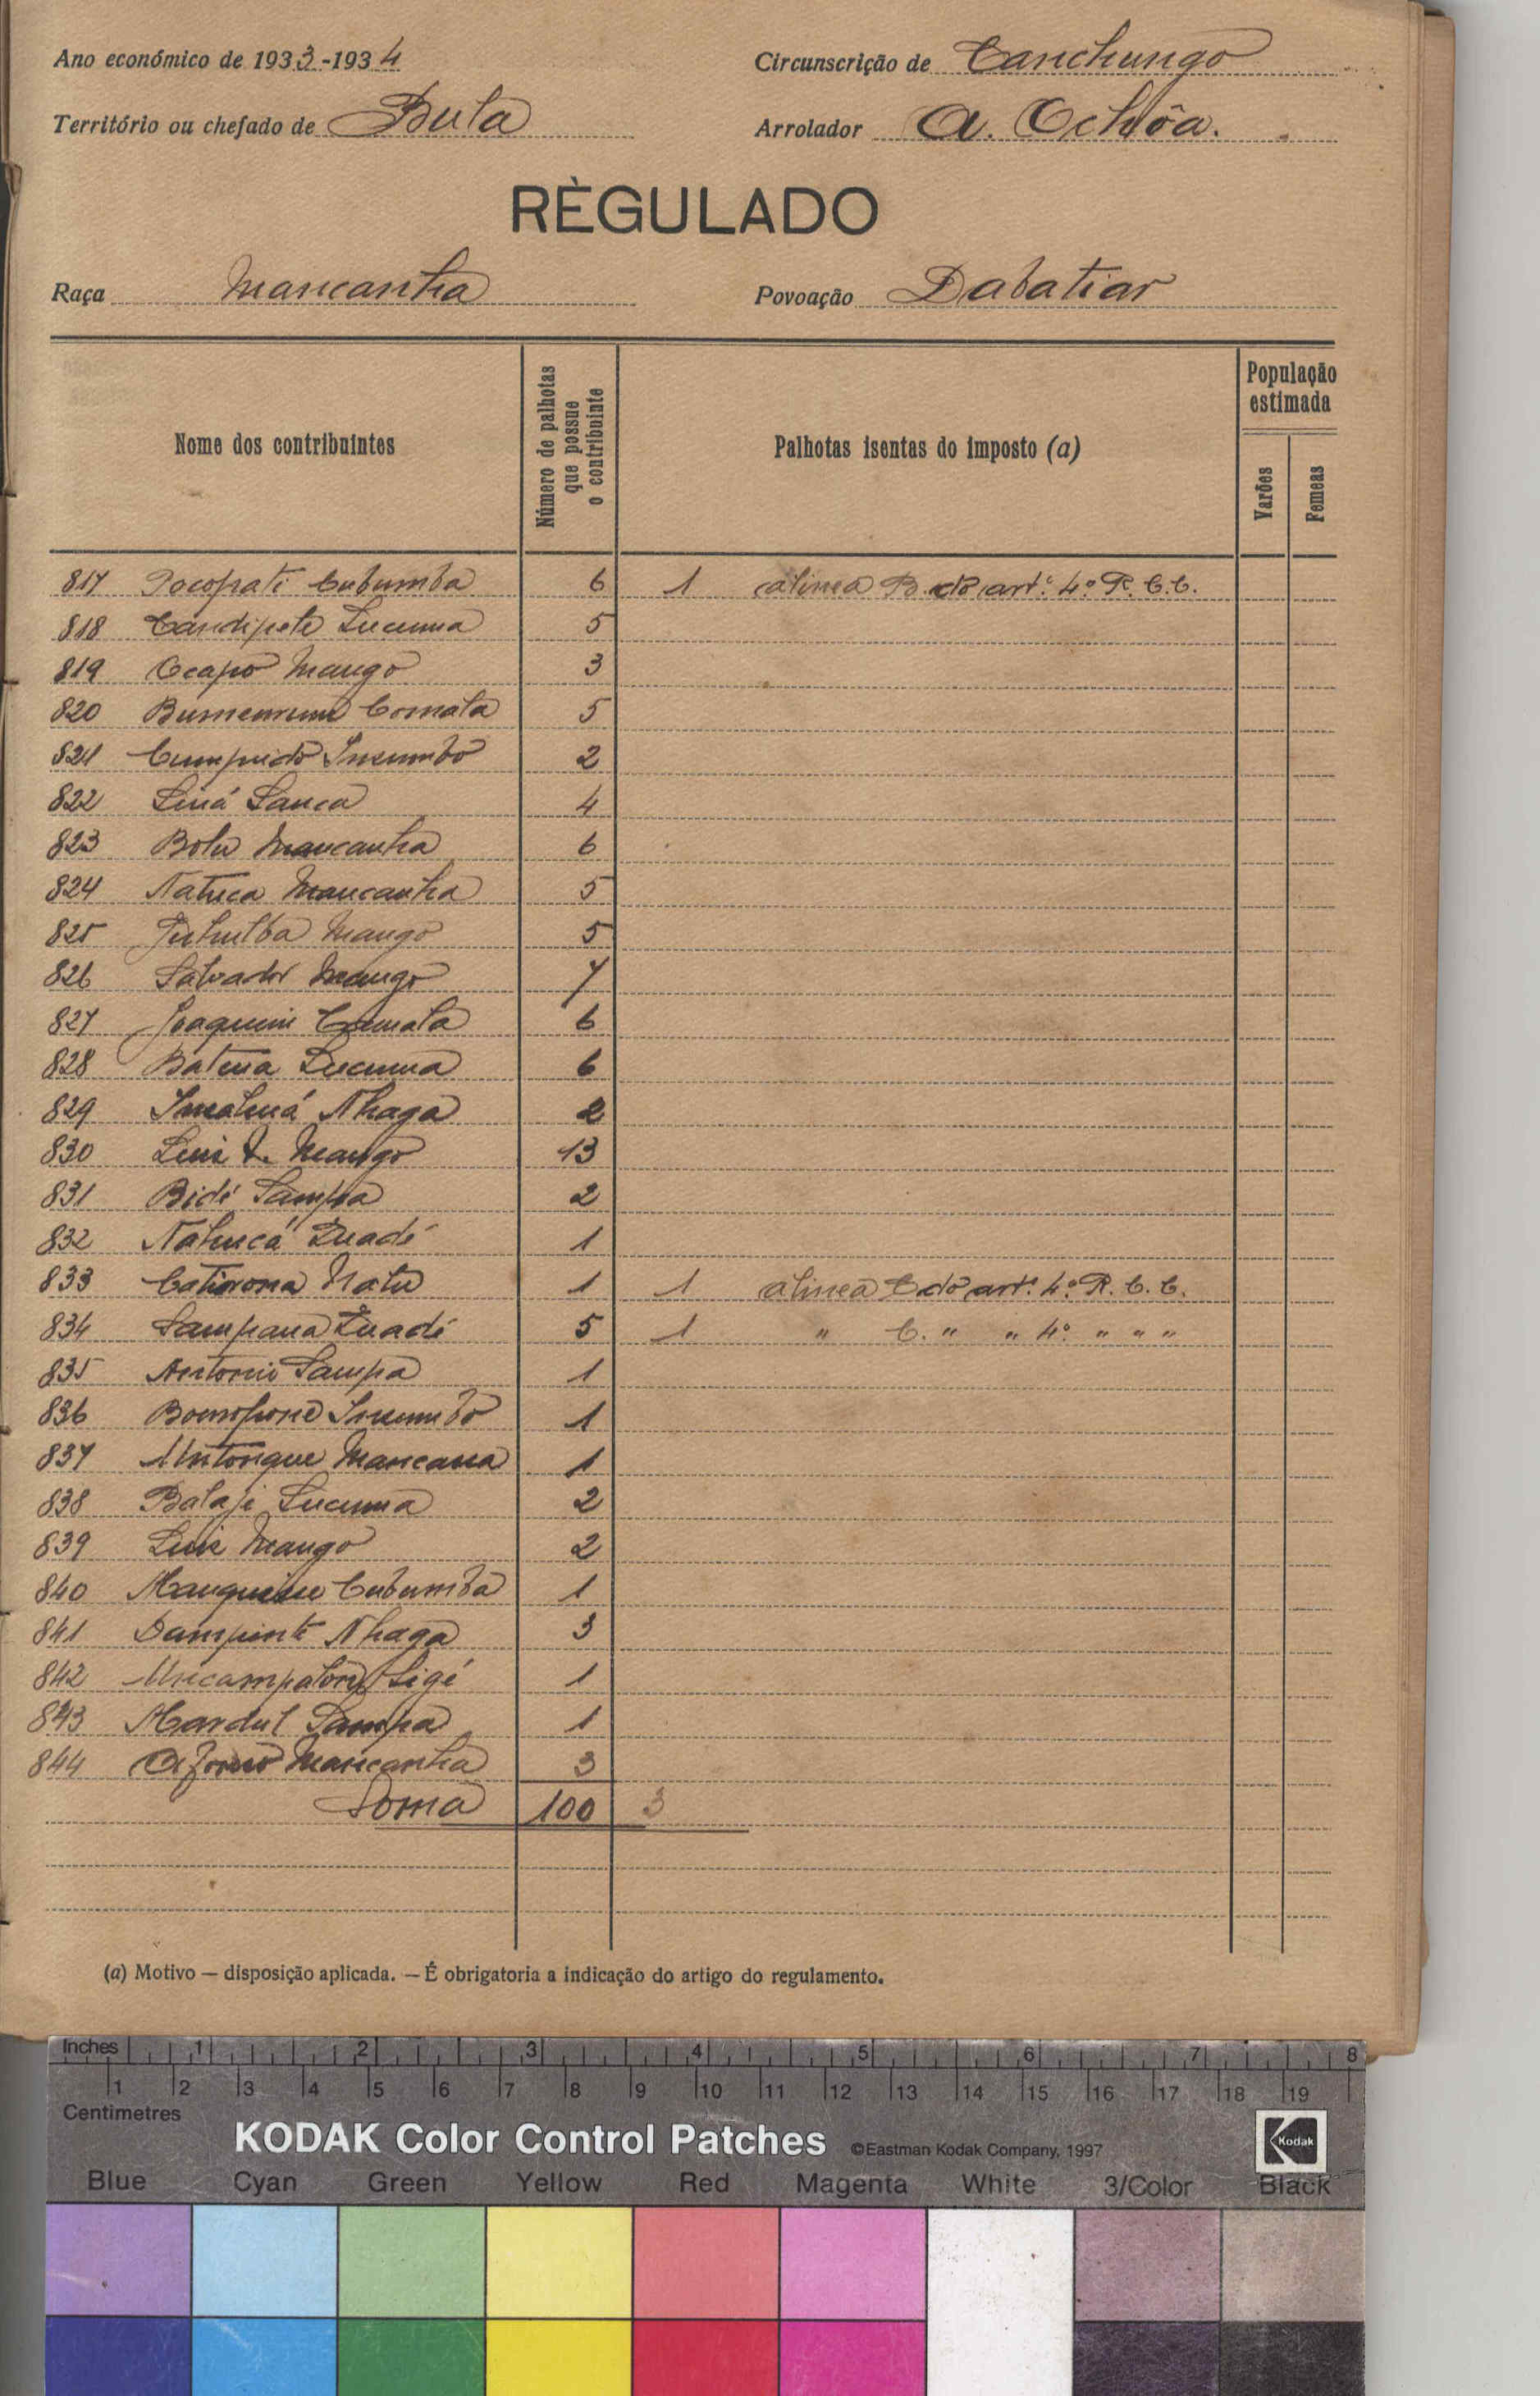 Ano económico de 1933-1934
Circunscrição de Canchungo
Território ou chefado de Bula
Arrolador A. Ochôa.
RÈGULADO
Raça Mancanha
Povoação Dabatiar
Nome dos contribuintes
Número de palhotas que possue o contribuinte
Palhotas isentas do imposto (a)
População estimada
Varões
Femeas
817 Cubumba 6 1 alinea B. do art.º 4.º R. C. C.
818 Candipete Lucuma 5
819 Ocapo Mango 3
820 Comata 5
821 Cumpridо Insumbo 2
822 Liná Sanca 4
823 Bolu Mancanha 6
824 Natuca Mancanha 5
825 Mango 5
826 Salvador Mango 7
827 Joaquim Comata 6
828 Batena Lucuma 6
829 Nhaga 2
830 Luis Mango 13
831 Bidé Sampa 2
832 Natucá Quadé 1
833 Natu 1 1 alinea C do art.º 4.º R. C. C.
834 Sampana Quadé 5 1 " C. " " 4.º " " "
835 Antonio Sampa 1
836 Insumbo 1
837 Untongue 1
838 Balaji Lucuma 2
839 Luis Mango 2
840 Cubumba 1
841 Dampinte Nhaga 3
842 Ligé 1
843 Sampa 1
844 Mancanha 3
Soma 100 3
(a) Motivo — disposição aplicada. — É obrigatoria a indicação do artigo do regulamento.
Inches 1 2 3 4 5 6 7 8
1 2 3 4 5 6 7 8 9 10 11 12 13 14 15 16 17 18 19
Centimetres
KODAK Color Control Patches ©Eastman Kodak Company, 1997 Kodak
Blue Cyan Green Yellow Red Magenta White 3/Color Black